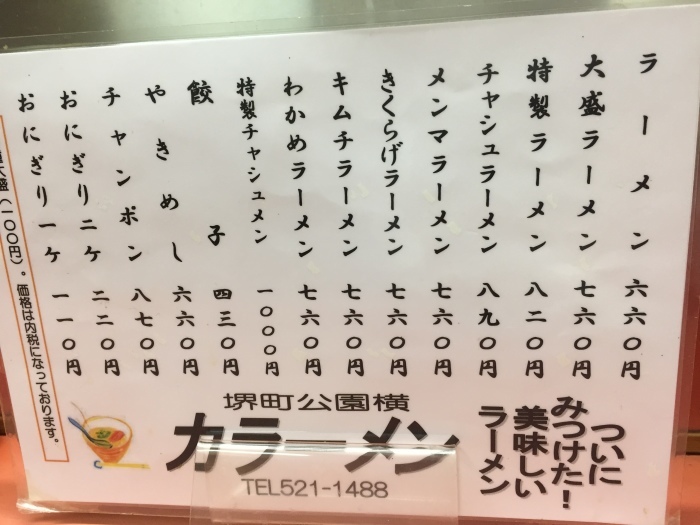 ラーメン 六六〇円
大盛ラーメン 七六〇円
特製ラーメン 八二〇円
チャシュラーメン 八九〇円
メンマラーメン 七六〇円
きくらげラーメン 七六〇円
キムチラーメン 七六〇円
わかめラーメン 七六〇円
特製チャシュメン 一〇〇〇円
餃子 四三〇円
やきめし 六六〇円
チャンポン 八七〇円
おにぎり二ケ 二二〇円
おにぎり一ケ 一一〇円
大盛(一〇〇円)。価格は内税になっております。
ついに
みつけた!
美味しい
ラーメン
堺町公園横
カラーメン
TEL521-1488